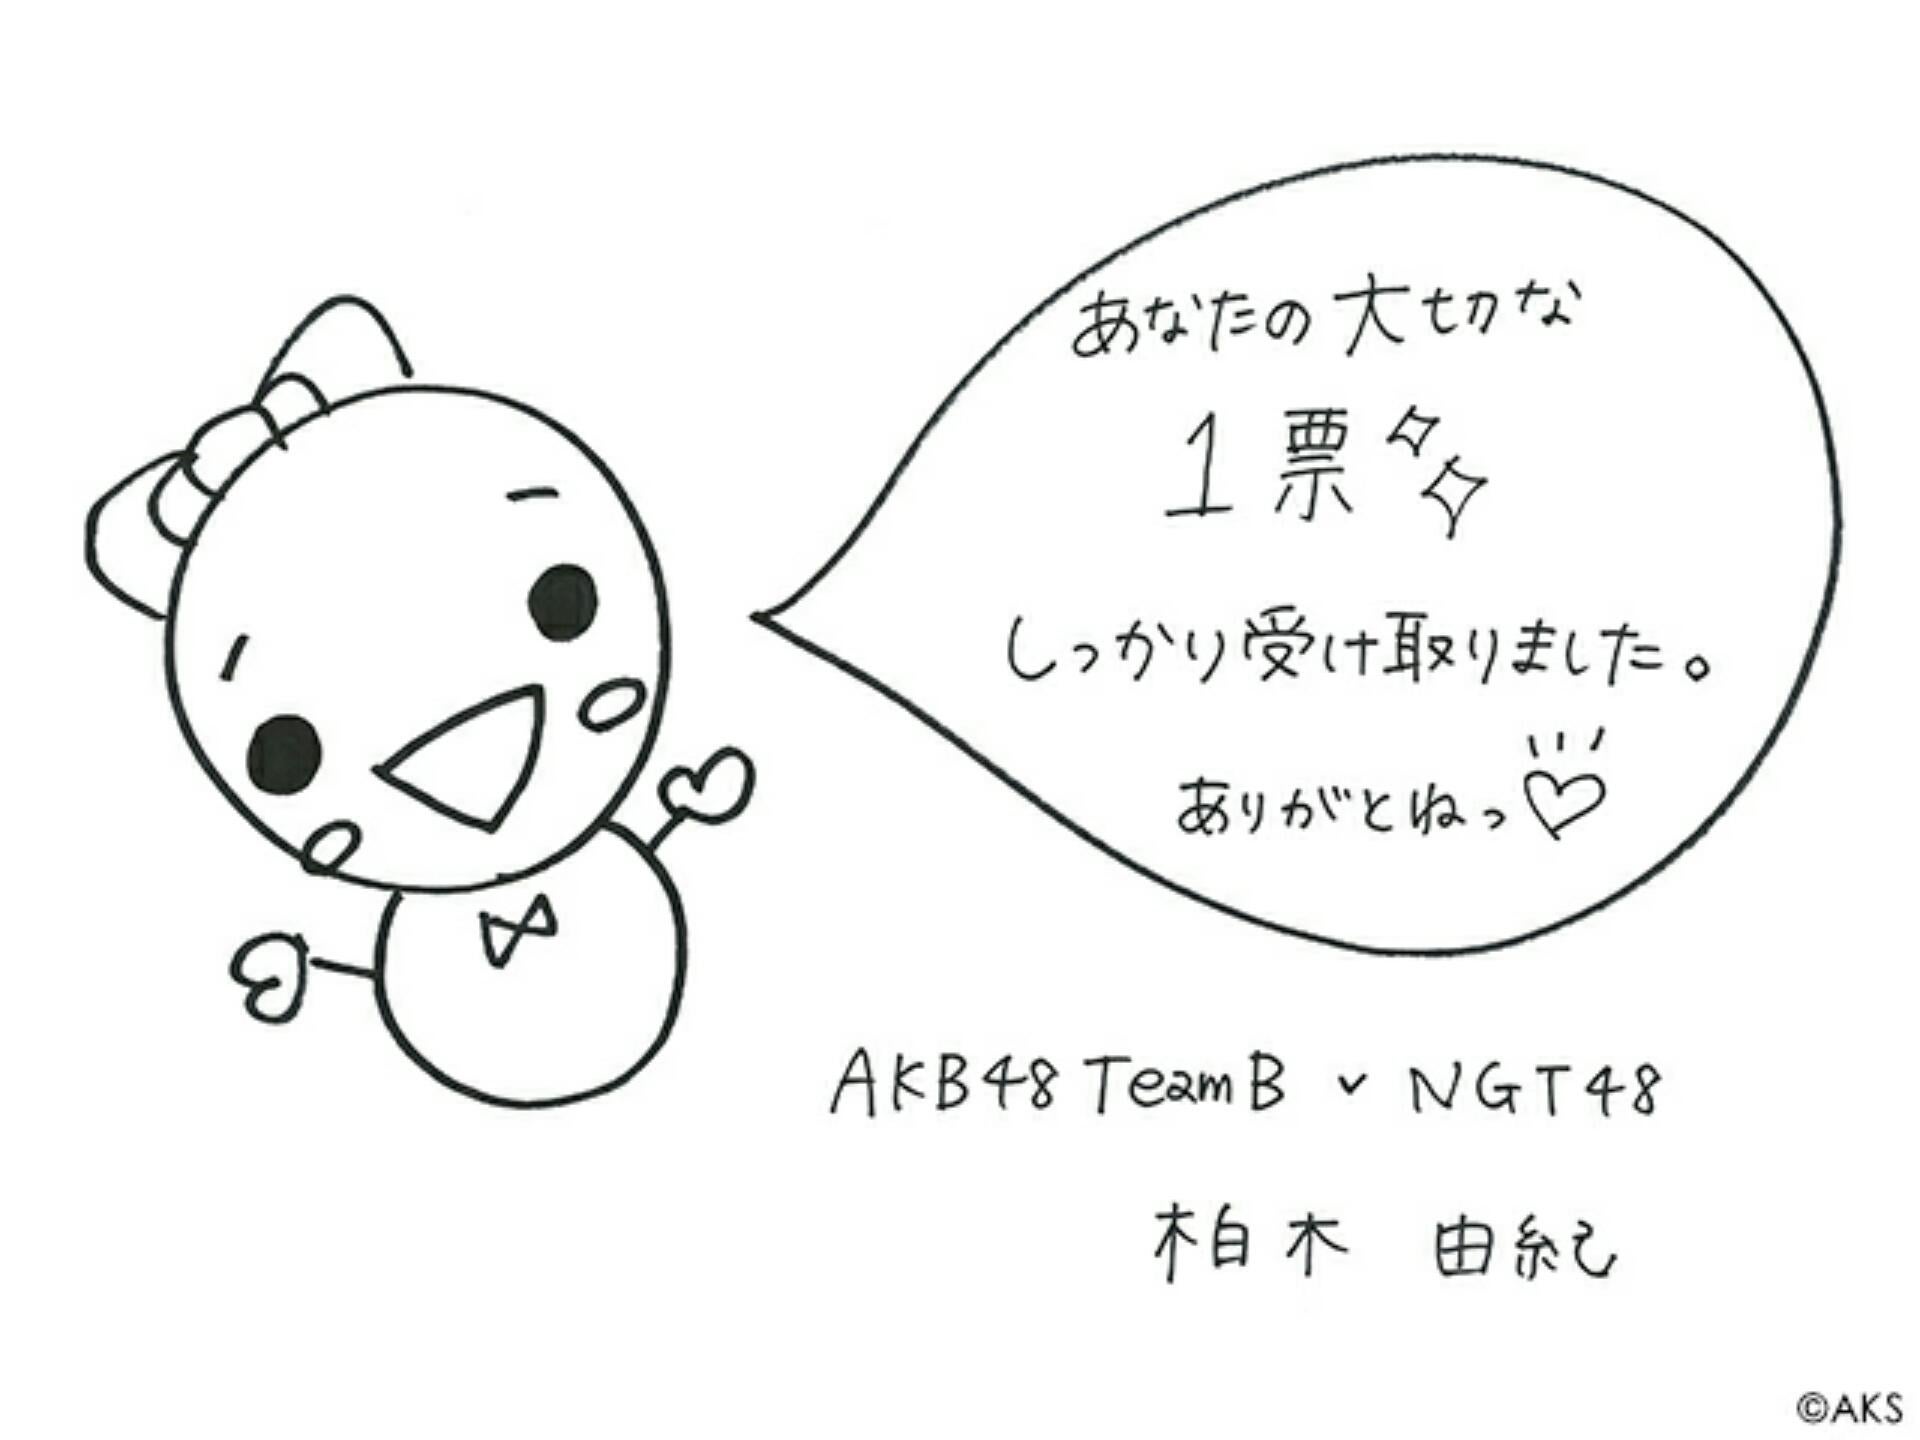 あなたの大切な
1票
しっかり受け取りました。
ありがとねっ♡
AKB48 TeamB ✓ NGT48
柏木 由紀
©AKS